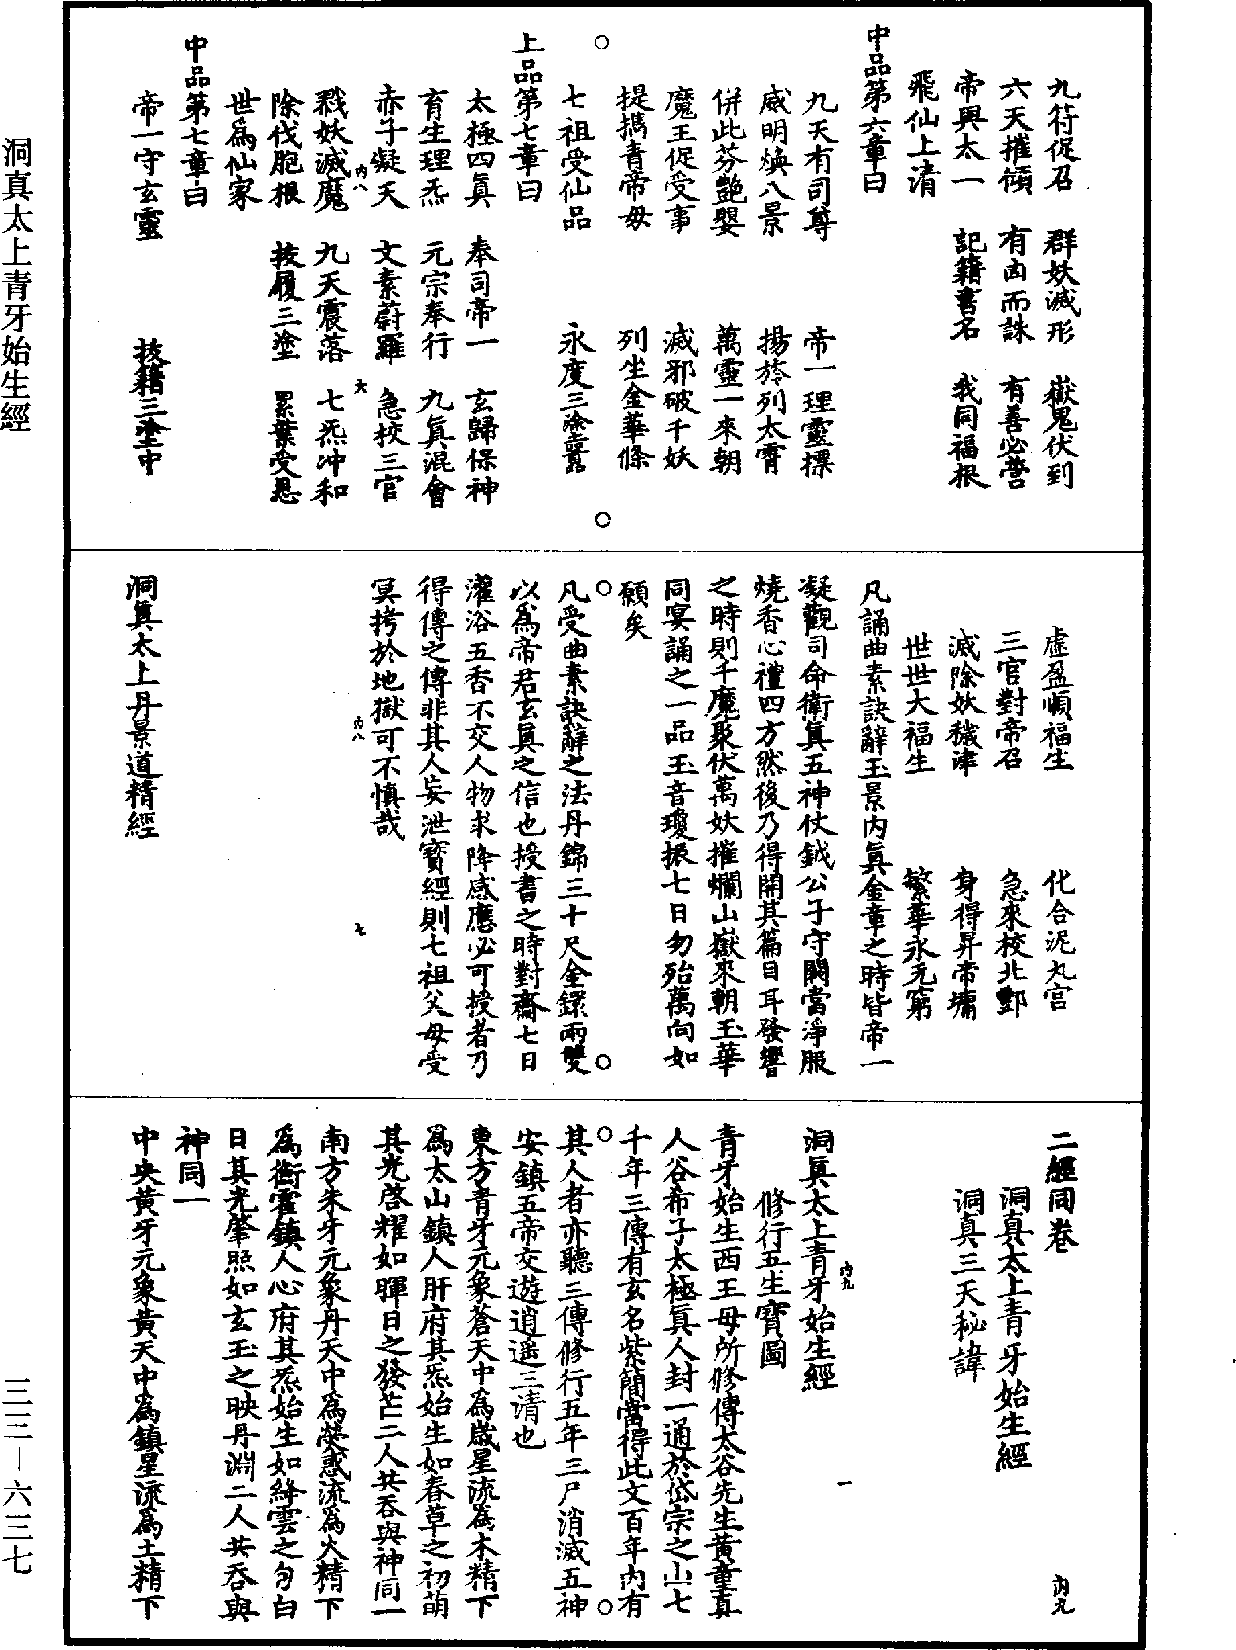 九符促召　群妖滅形　嶽鬼伏到
六天摧傾　有凶而誅　有善必營
帝與太一　記籍書名　我同福根
飛仙上清
中品第六章曰
九天有司尊　帝一理靈標
威明煥八景　揚旍列太霄
併此芬艷嬰　萬靈一來朝
魔王促受事　滅邪破千妖
提攜青帝母　列坐金華條
七祖受仙品　永度三塗
上品第七章曰
太極四真　奉司帝一　玄歸保神
育生理炁　元宗奉行　九真混會
赤子凝天　文素蔚羅　急校三官
戮妖滅魔　九天震落　七炁沖和
內八　六
除伐胞根　拔履三塗　累葉受恩
世為仙家
中品第七章曰
帝一守玄靈　拔籍三塗中
虛盈順福生　化合泥丸宮
三官對帝召　急來校北酆
滅除妖穢津　身得昇帝墉
世世大福生　繁華永无窮
凡誦曲素訣辭玉景內真金章之時皆帝一
凝觀司命衛真五神仗鉞公子守關當淨服
燒香心禮四方然後乃得開其篇目耳發響
之時則千魔聚伏萬妖摧爛山嶽來朝玉華
同宴誦之一品玉音瓊振七日勿殆萬向如
願矣
凡受曲素訣辭之法丹錦三十尺金鐶兩雙
以為帝君玄真之信也授書之時對齋七日
灌浴五香不交人物求降感應必可授者乃
得傳之傳非其人妄泄寶經則七祖父母受
內八　七
冥拷於地獄可不慎哉
洞真太上丹景道精經
二經同卷　內九
洞真太上青牙始生經
洞真三天秘諱
內九　一
洞真太上青牙始生經
修行五生寶圖
青牙始生西王母所修傳太谷先生黃童真
人谷希子太極真人封一通於岱宗之山七
千年三傳有玄名紫簡當得此文百年內有
其人者亦聽三傳修行五年三尸消滅五神
安鎮五帝交遊逍遥三清也
東方青牙元象蒼天中為歲星流為木精下
為太山鎮人肝府其炁始生如春草之初萌
其光啓耀如暉日之發芒二人共吞與神同一
南方朱牙元象丹天中為熒惑流為火精下
為衡霍鎮人心府其炁始生如絳雲之匀白
日其光肇照如玄玉之映丹淵二人共吞與
神同一
中央黃牙元象黃天中為鎮星流為土精下
洞真太上青牙始生經
三三－六三七